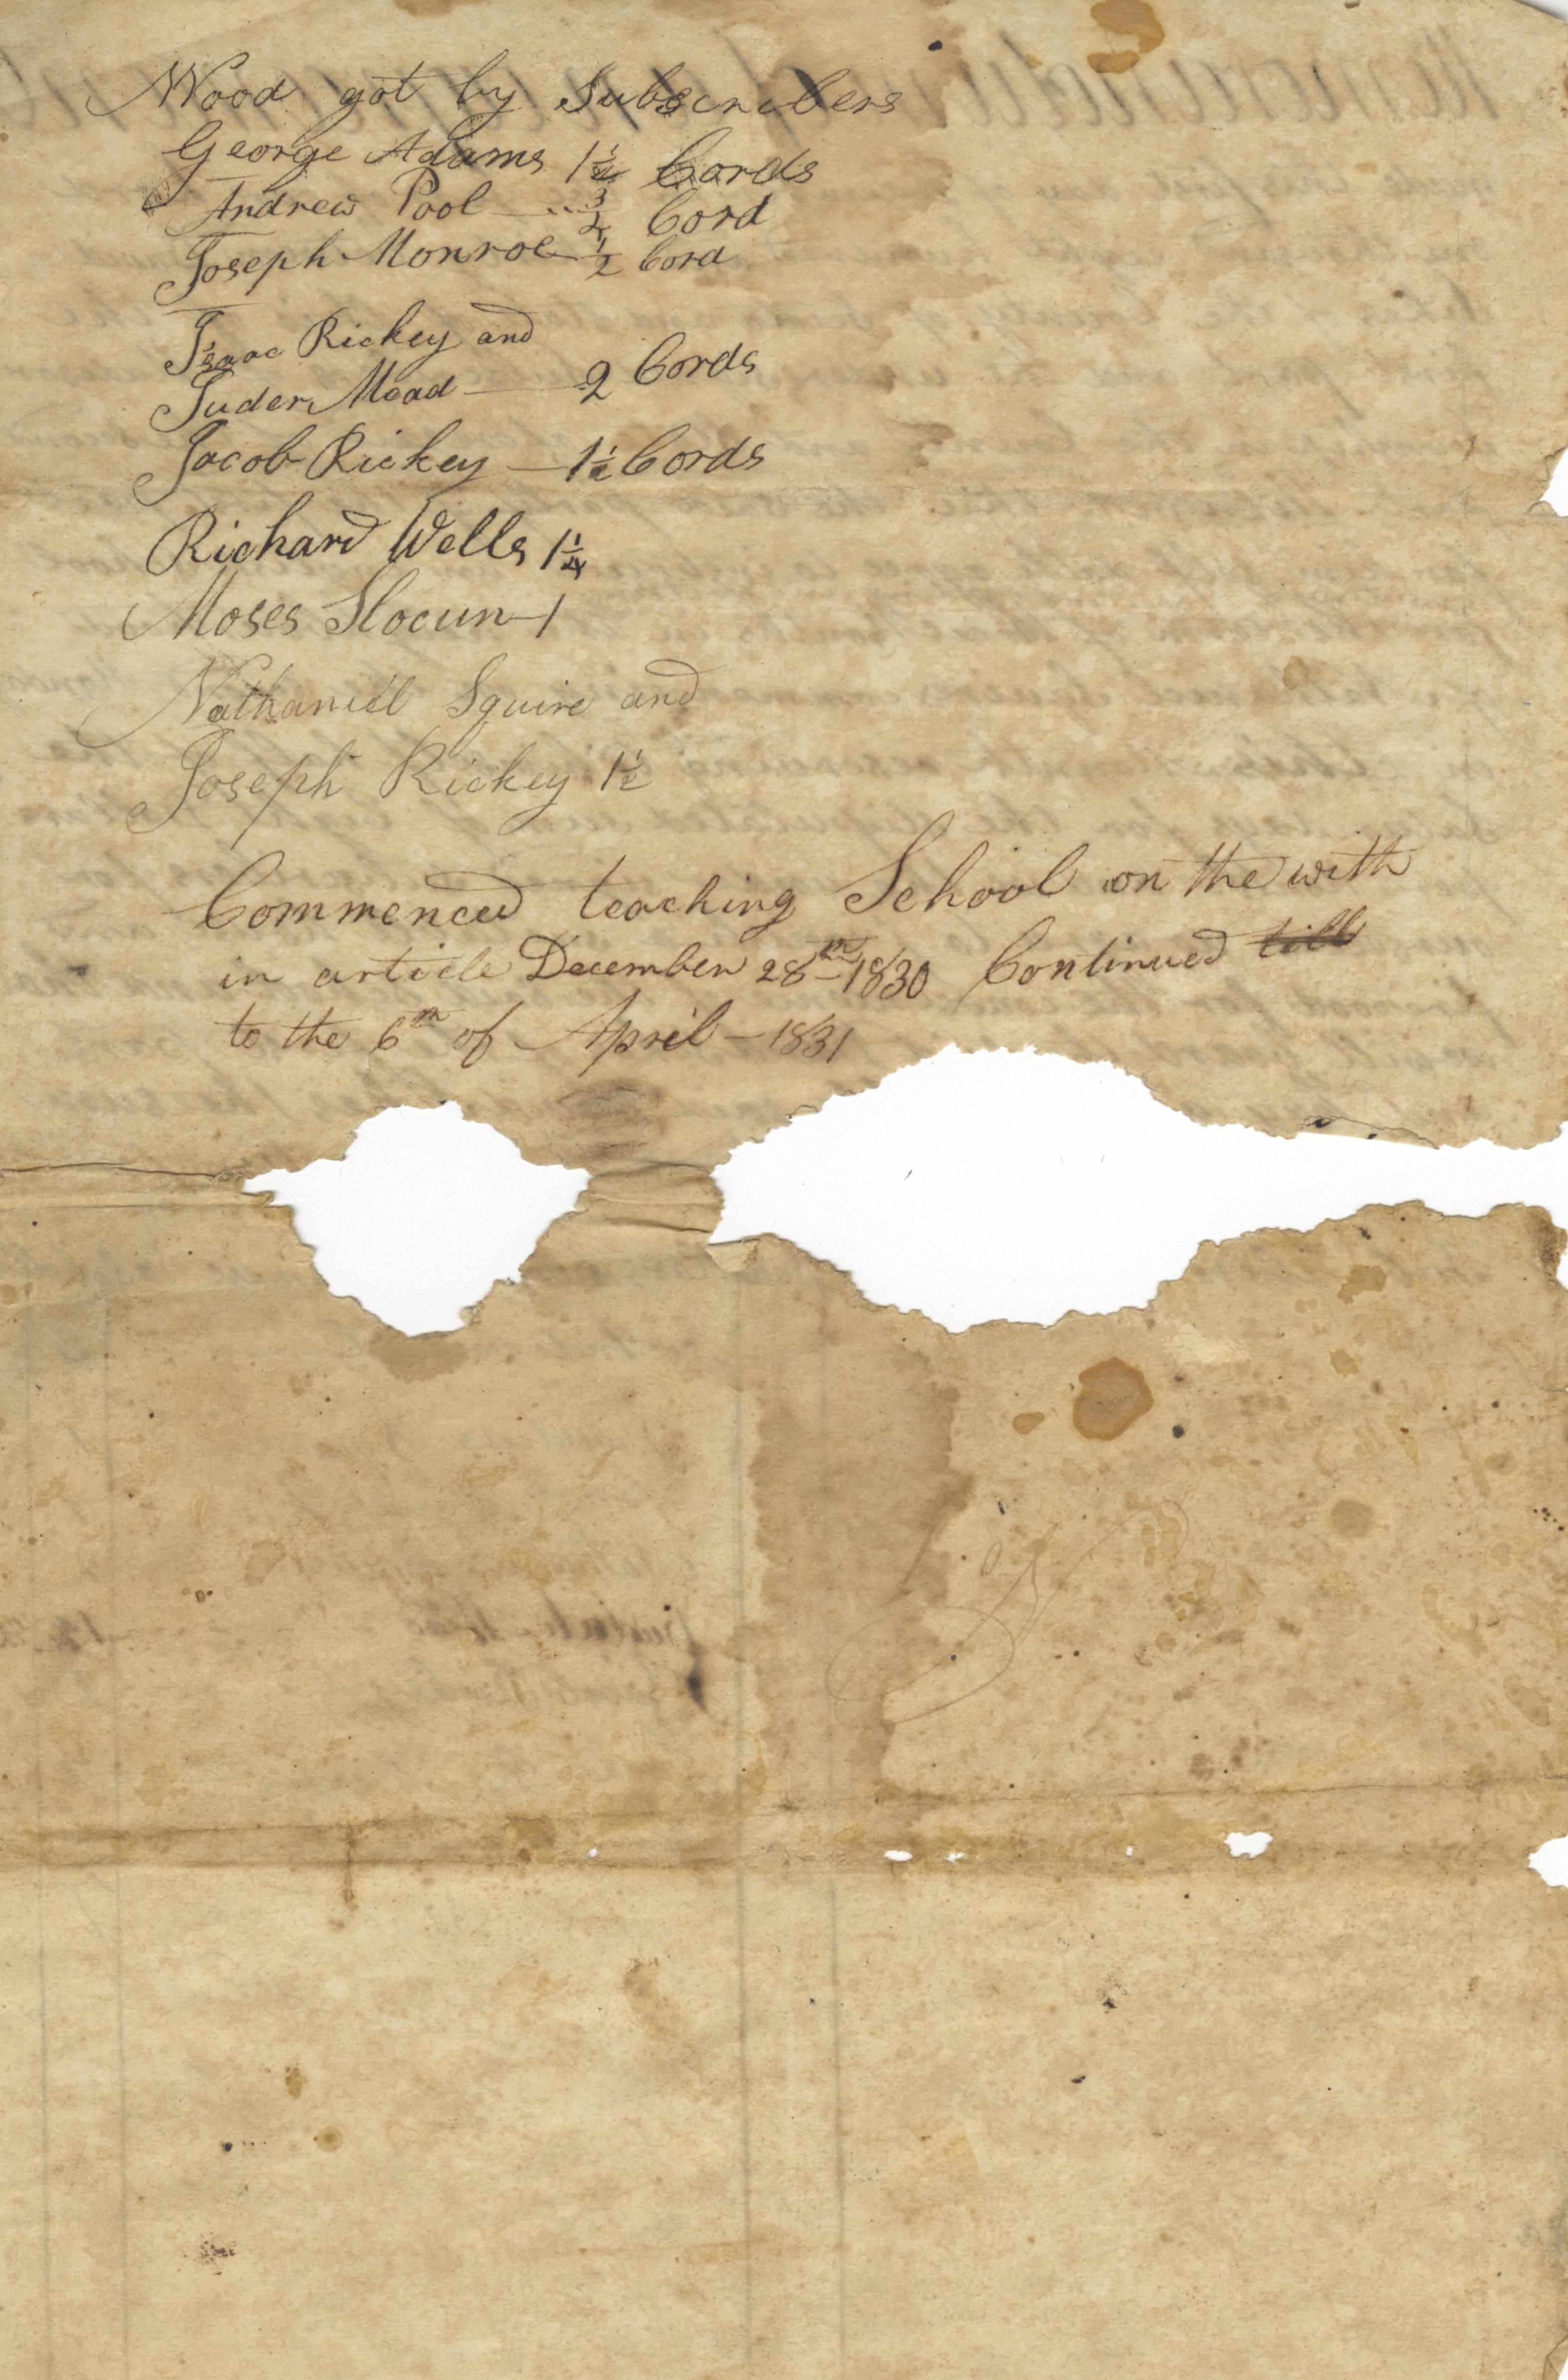 Wood got by Subscribers
George Adams 1½ Cords
Andrew Pool — .. ¾ Cord
Joseph Monroe — ½ Cord
Isaac Rickey and
Juder Mead — 2 Cords
Jacob Rickey — 1½ Cords
Richard Wells 1¼
Moses Slocum — 1
Nathaniel Squire and
Joseph Rickey 1½
Commenced teaching School on the with
in article December 28th — 1830 Continued till
to the 6th of April — 1831